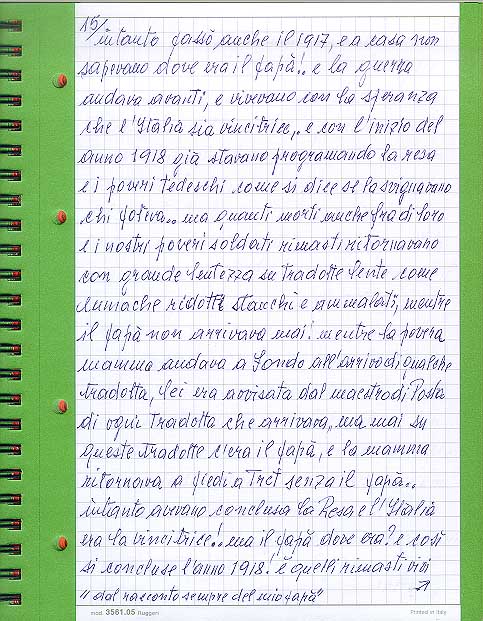 15/
intanto passò anche il 1917, e a casa non
sapevano dove era il papà!.. e la guerra
andava avanti, e vivevano con la speranza
che l'Italia sia vincitrice,. e con l'inizio del
anno 1918 già stavano programando la resa
e i poveri tedeschi come si dice se la svignavano
chi poteva.. ma quanti morti anche fra di loro
e i nostri poveri soldati rimasti ritornavano
con grande lentezza su tradotte lente come
lumache ridotti stacchi e ammalati, mentre
il papà non arrivava mai! mentre la povera
mamma andava a Sondo all'arrivo di qualche
tradotta, lei era avvisata dal maestro di Posta
di ogni tradotta che arrivava, ma mai su
queste tradotte c'era il papà, e la mamma
ritornava a piedi a Tret senza il papà..
intanto avevano conclusa la Resa e l'Italia
era la vincitrice!.. ma il papà dove era? e così
si concluse l'anno 1918! e quelli rimasti vivi
"dal racconto sempre del mio papà"
mod. 3561.05 Ruggeri Printed in Italy